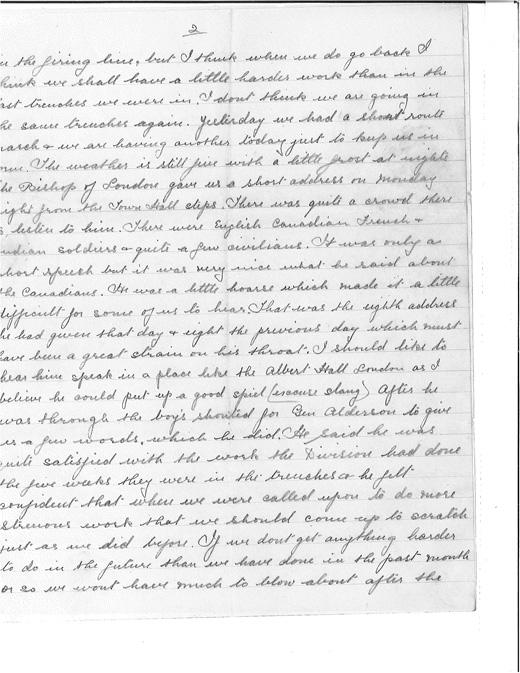 2
in the firing line, but I think when we do go back I
think we shall have a little harder work than in the
last trenches we were in. I dont think we are going in
the same trenches again. Yesterday we had a short route
march & we are having another today just to keep us in
The weather is still fine with a little frost at nights
the Bishop of London gave us a short address on Monday
night from the Town Hall steps. There was quite a crowd there
to listen to him. There were English Canadian French &
Indian soldiers & quite a few civilians. It was only a
short speech but it was very nice what he said about
the Canadians. He was a little hoarse which made it a little
difficult for some of us to hear. That was the eighth address
he had given that day & eight the previous day which must
have been a great strain on his throat. I should like to
hear him speak in a place like the Albert Hall London as I
believe he could put up a good spiel (excuse slang) After he
was through the boys shouted for Gen Alderson to give
us a few words, which he did. He said he was
quite satisfied with the work the Division had done
the five weeks they were in the trenches & he felt
confident that when we were called upon to do more
strenous work that we should come up to scratch
just as we did before. If we dont get anything harder
to do in the future than we have done in the past month
or so we wont have much to blow about after the